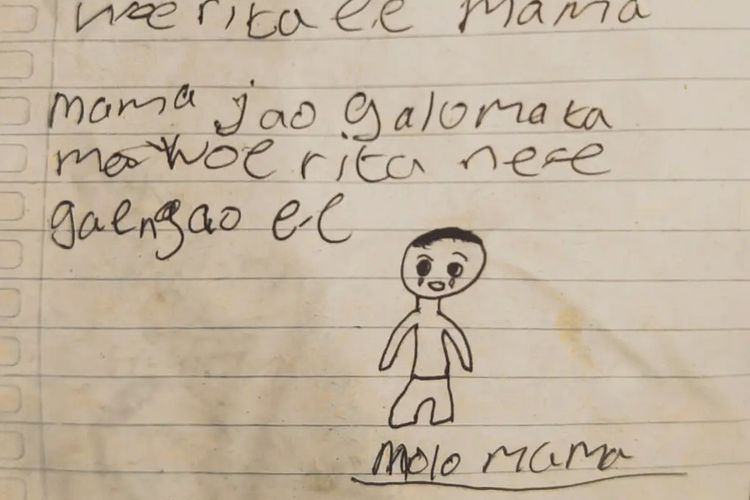 woe rita ee mama
mama jao galomata
ma woe rita nese
gaengao e-e
molo mama